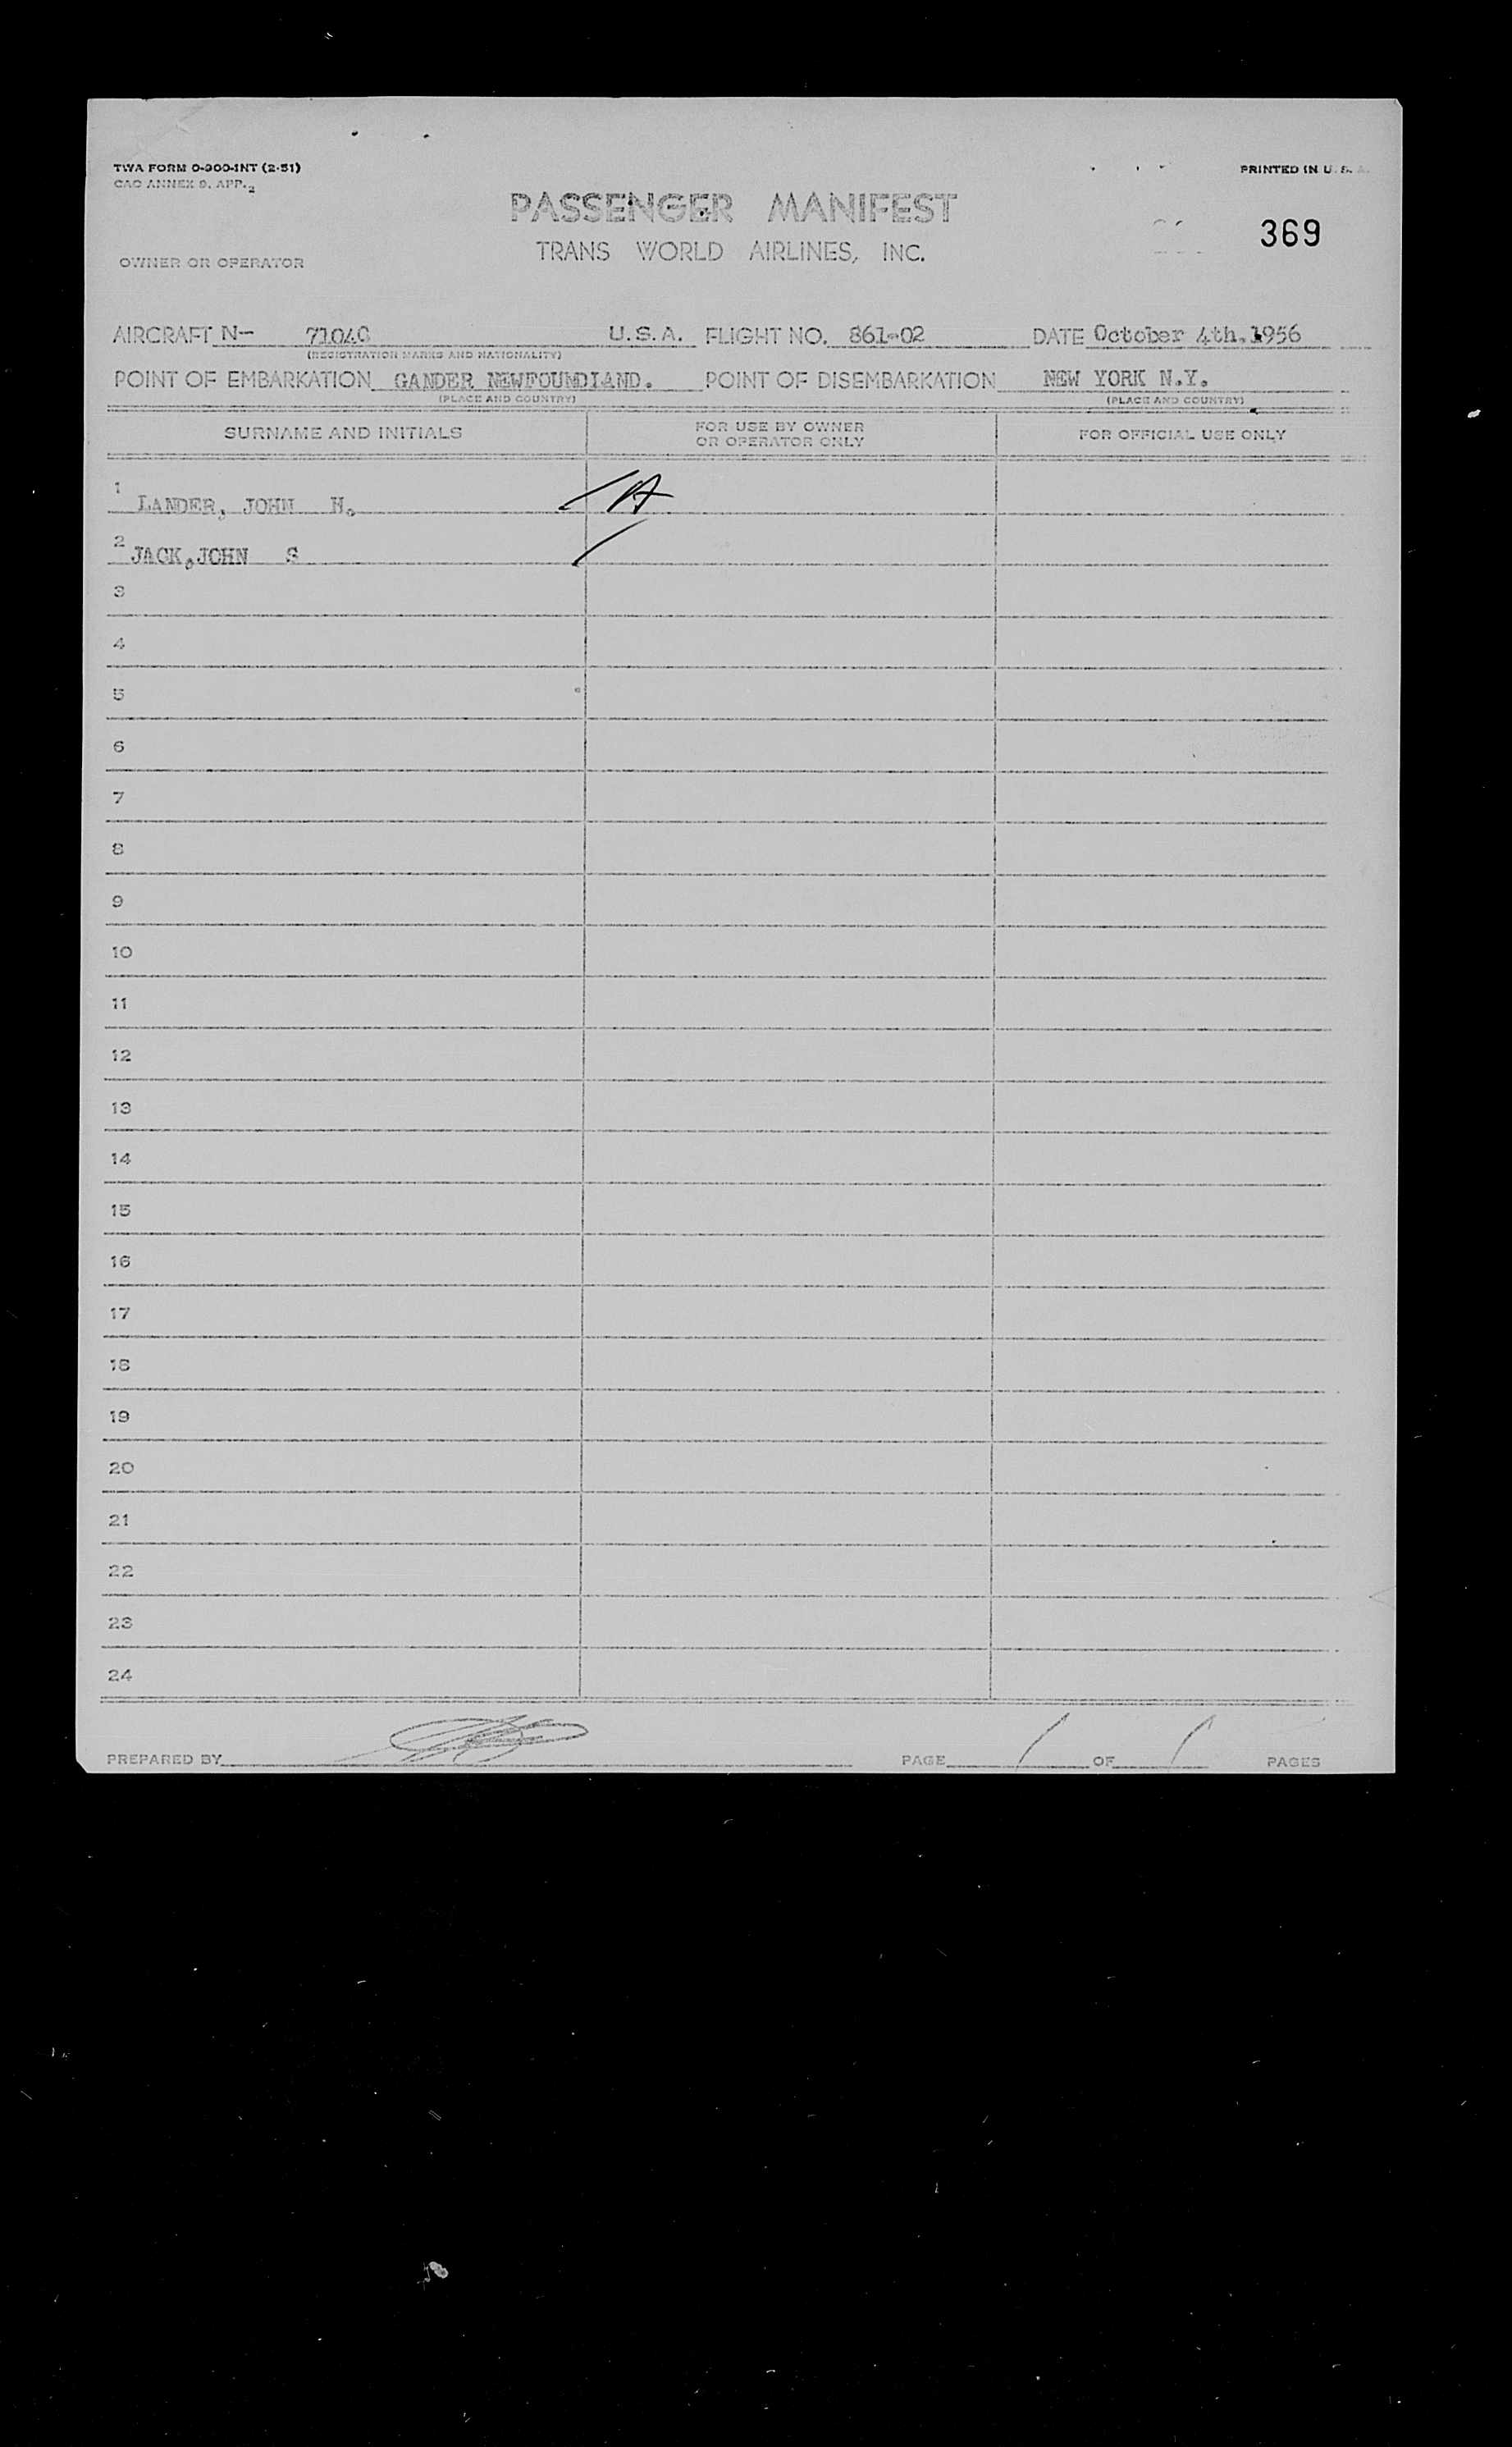 TWA FORM O-900-INT (2-51)
PRINTED IN U. S. A.
CAO ANNEX 9, APP. 2
PASSENGER MANIFEST
369
TRANS WORLD AIRLINES, INC.
OWNER OR OPERATOR
AIRCRAFT N- U.S.A. FLIGHT NO. 861-02 DATE October 4th.1956
(REGISTRATION MARKS AND NATIONALITY)
POINT OF EMBARKATION GANDER NEWFOUNDLAND. POINT OF DISEMBARKATION NEW YORK N.Y.
(PLACE AND COUNTRY) (PLACE AND COUNTRY)
SURNAME AND INITIALS FOR USE BY OWNER OR OPERATOR ONLY FOR OFFICIAL USE ONLY
1 LANDER, JOHN
2 JACK,JOHN S
3
4
5
6
7
8
9
10
11
12
13
14
15
16
17
18
19
20
21
22
23
24
PREPARED BY PAGE 1 OF 1 PAGES